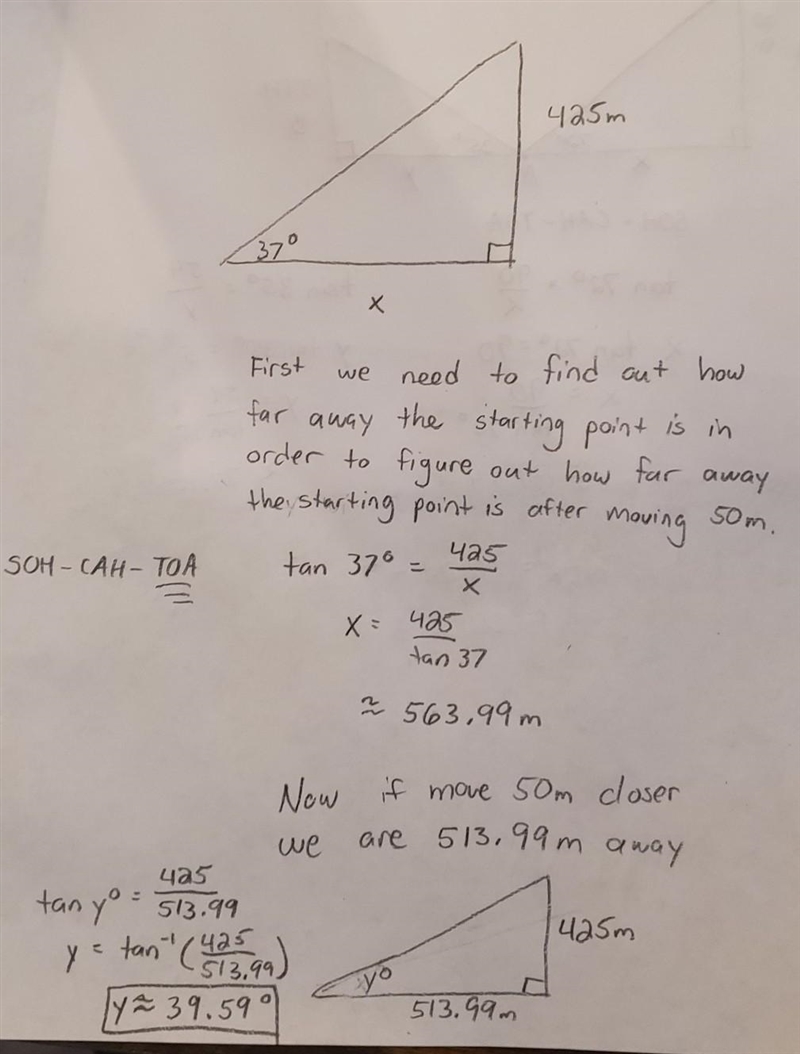 425m
37°
x
First we need to find out how
far away the starting point is in
order to figure out how far away
the starting point is after moving 50m.
SOH-CAH-TOA
tan 37° = 425/x
x = 425/tan 37
≈ 563.99m
Now if move 50m closer
we are 513.99m away
tan y° = 425/513.99
y = tan⁻¹(425/513.99)
y ≈ 39.59°
425m
y°
513.99m